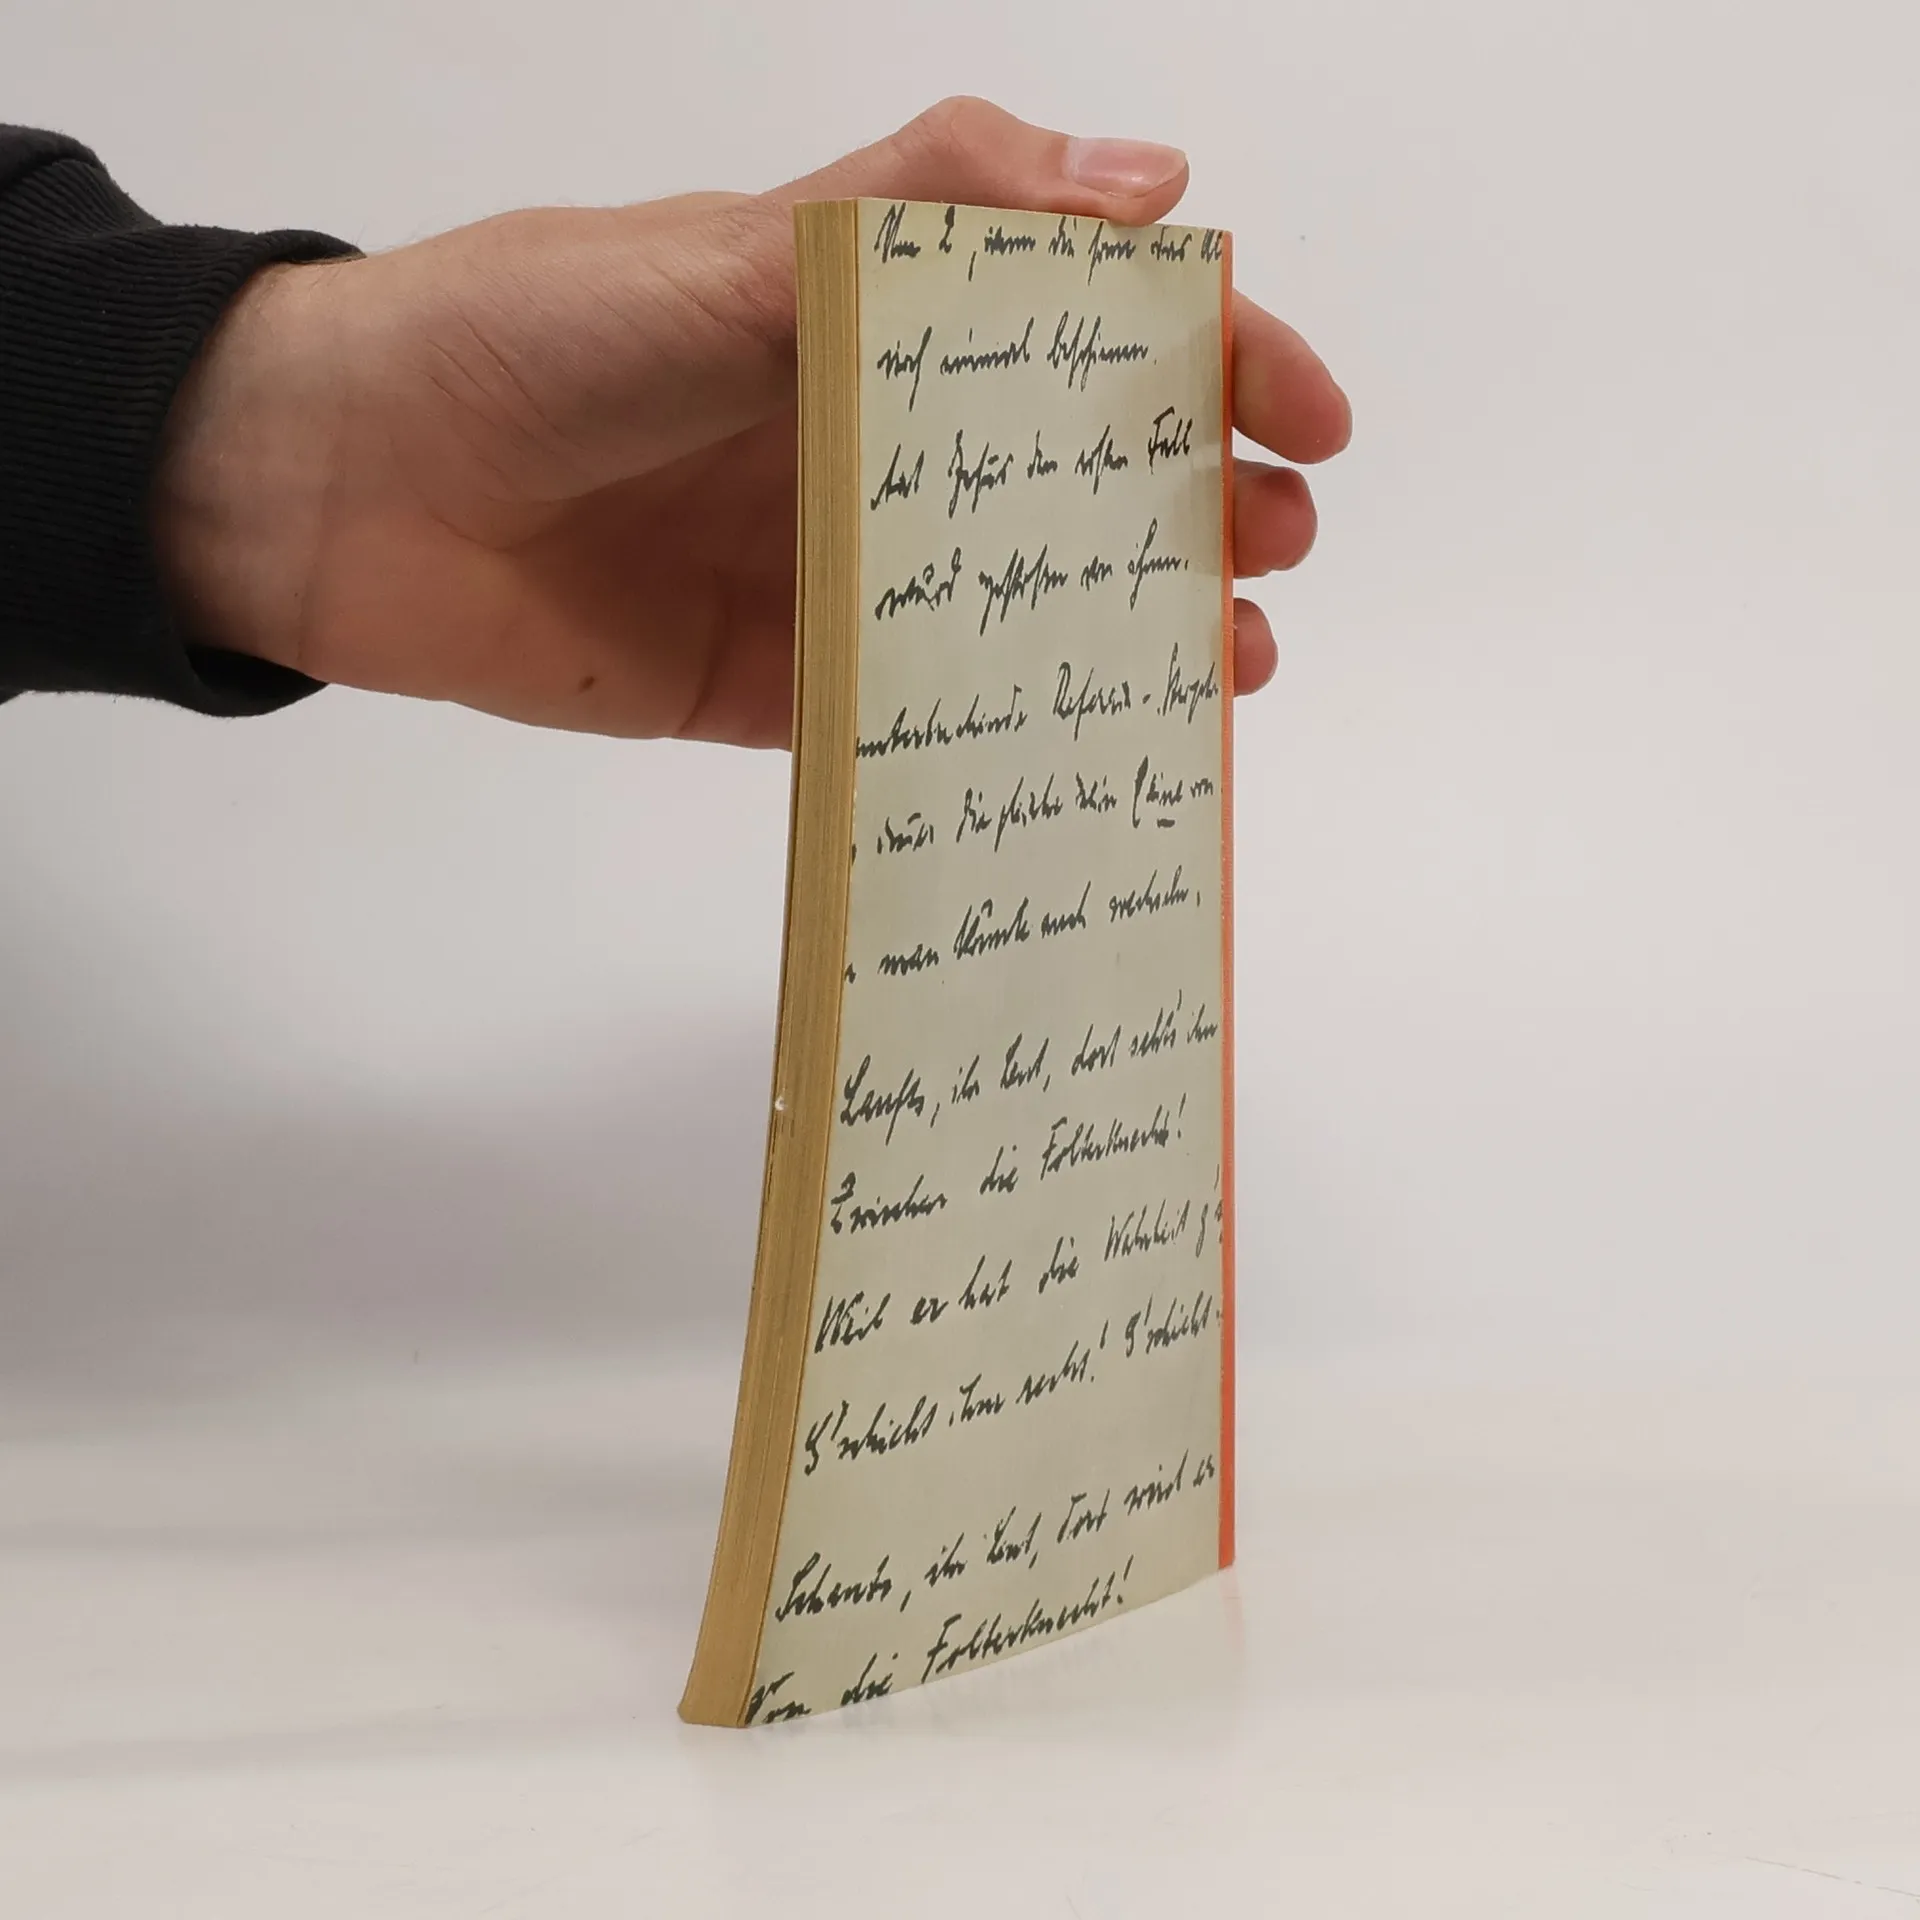 Um 2, wenn die sonne das
noch einmal beschienen.
hat Jesus den ersten Fall
wurd gestossen von ihnen.
unterbrechende Refrain -
die gleiche sein (eine von
man könnte auch wechseln,
Laufts, ihr Leut, dort seht's ihn
Zwischen die Folterknecht!
Weil er hat die Wahrheit
G'schieht ihm recht! G'schieht
Schauts, ihr Leut, dort wird er
Von die Folterknecht!